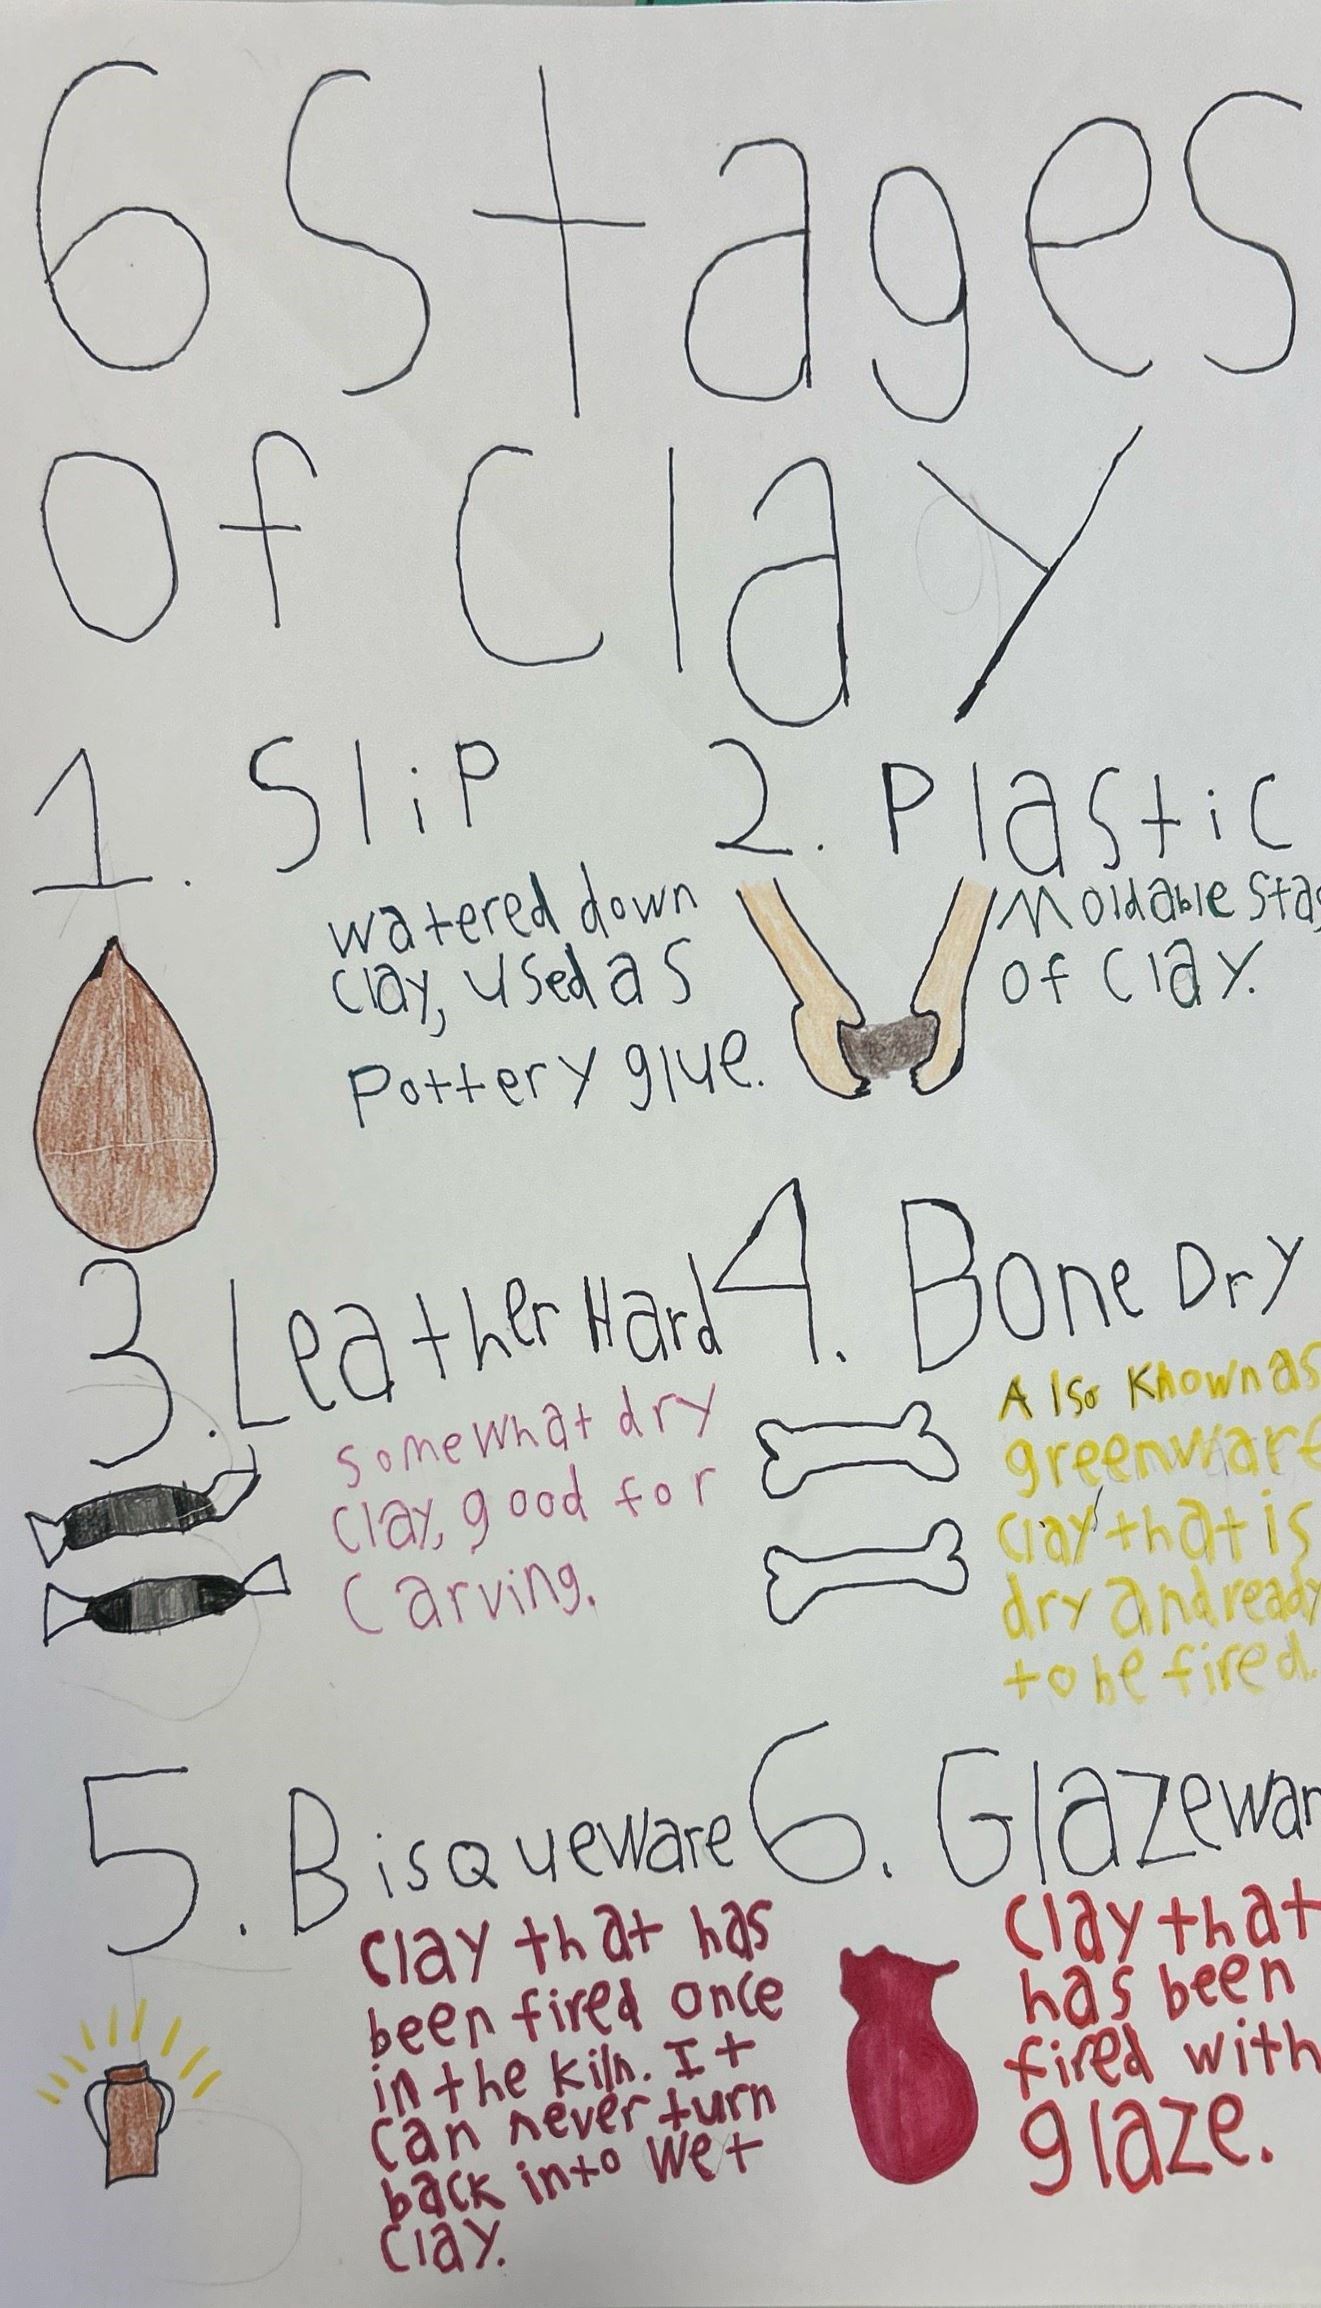 6 Stages
of Clay
1. Slip
watered down
clay, used as
Pottery glue.
2. Plastic
Moldable Sta
of Clay.
3. Leather Hard
somewhat dry
clay, good for
Carving.
4. Bone Dry
Also Known as
greenware
Clay that is
dry and ready
to be fired.
5. Bisqueware
Clay that has
been fired once
in the kiln. It
can never turn
back into Wet
Clay.
6. Glazewar
Clay that
has been
fired with
glaze.